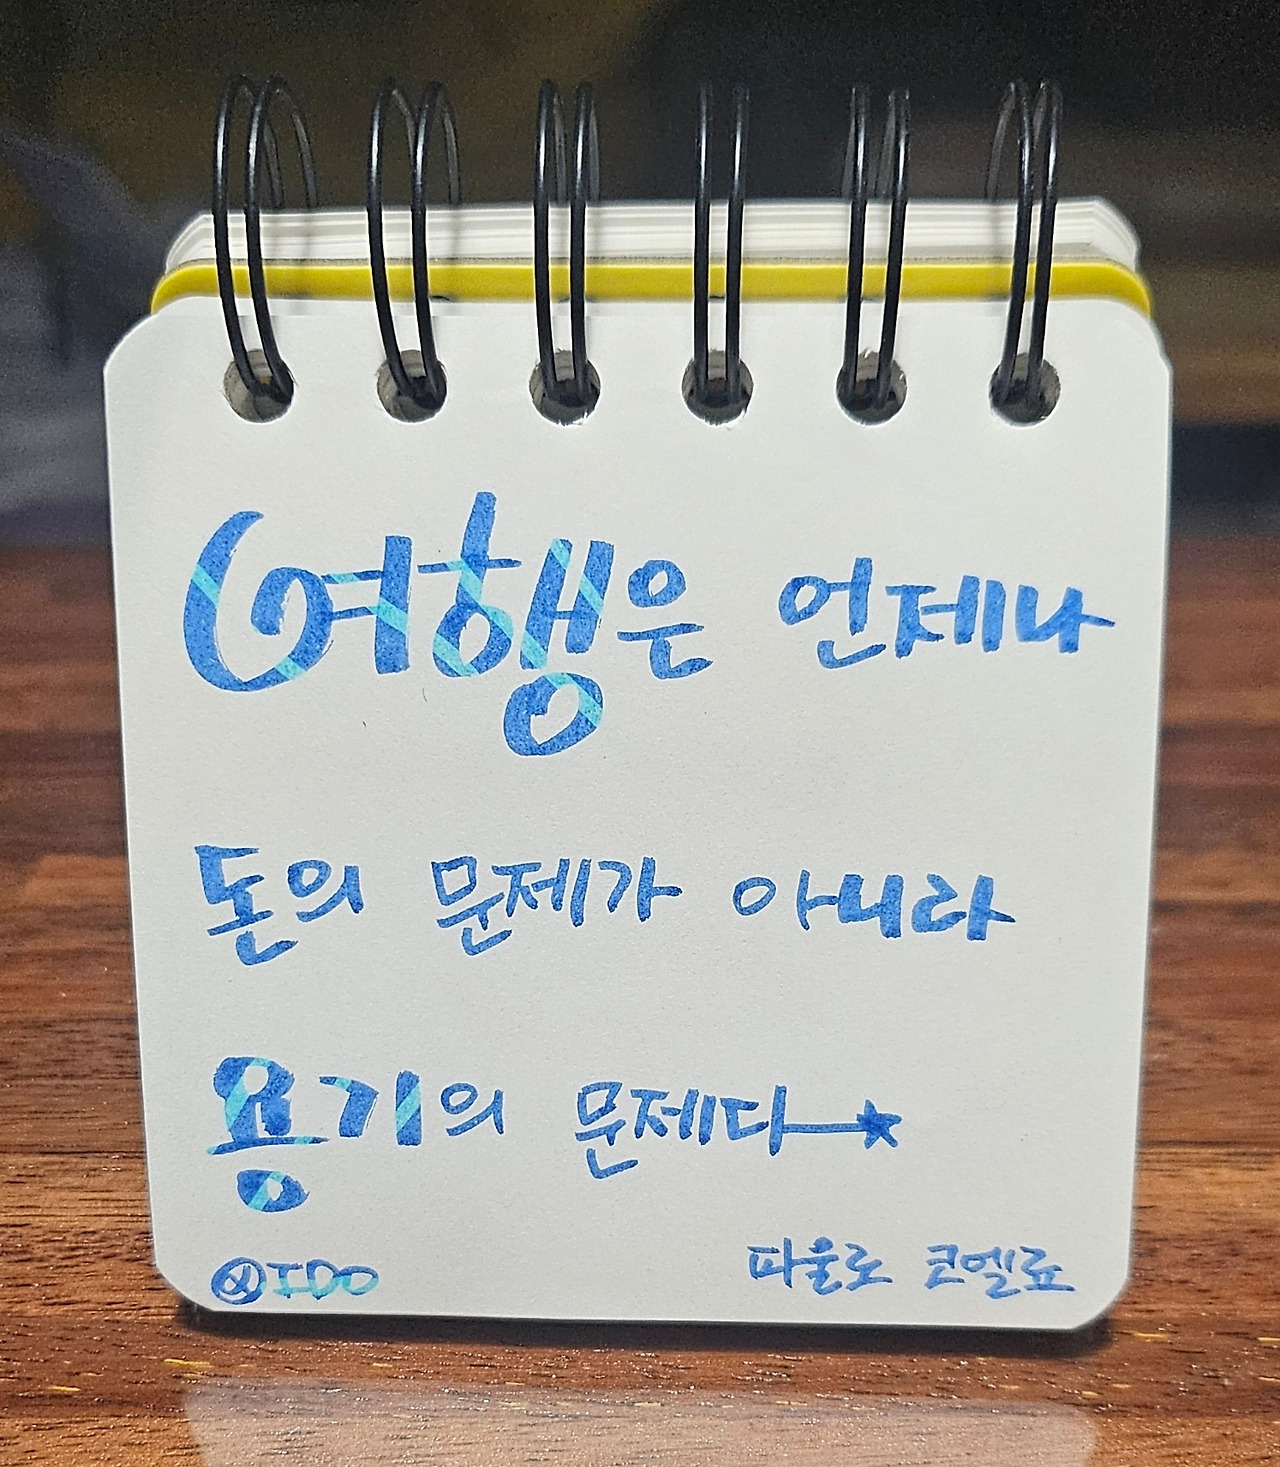 여행은 언제나
돈의 문제가 아니라
용기의 문제다
IDO
파울로 코엘료